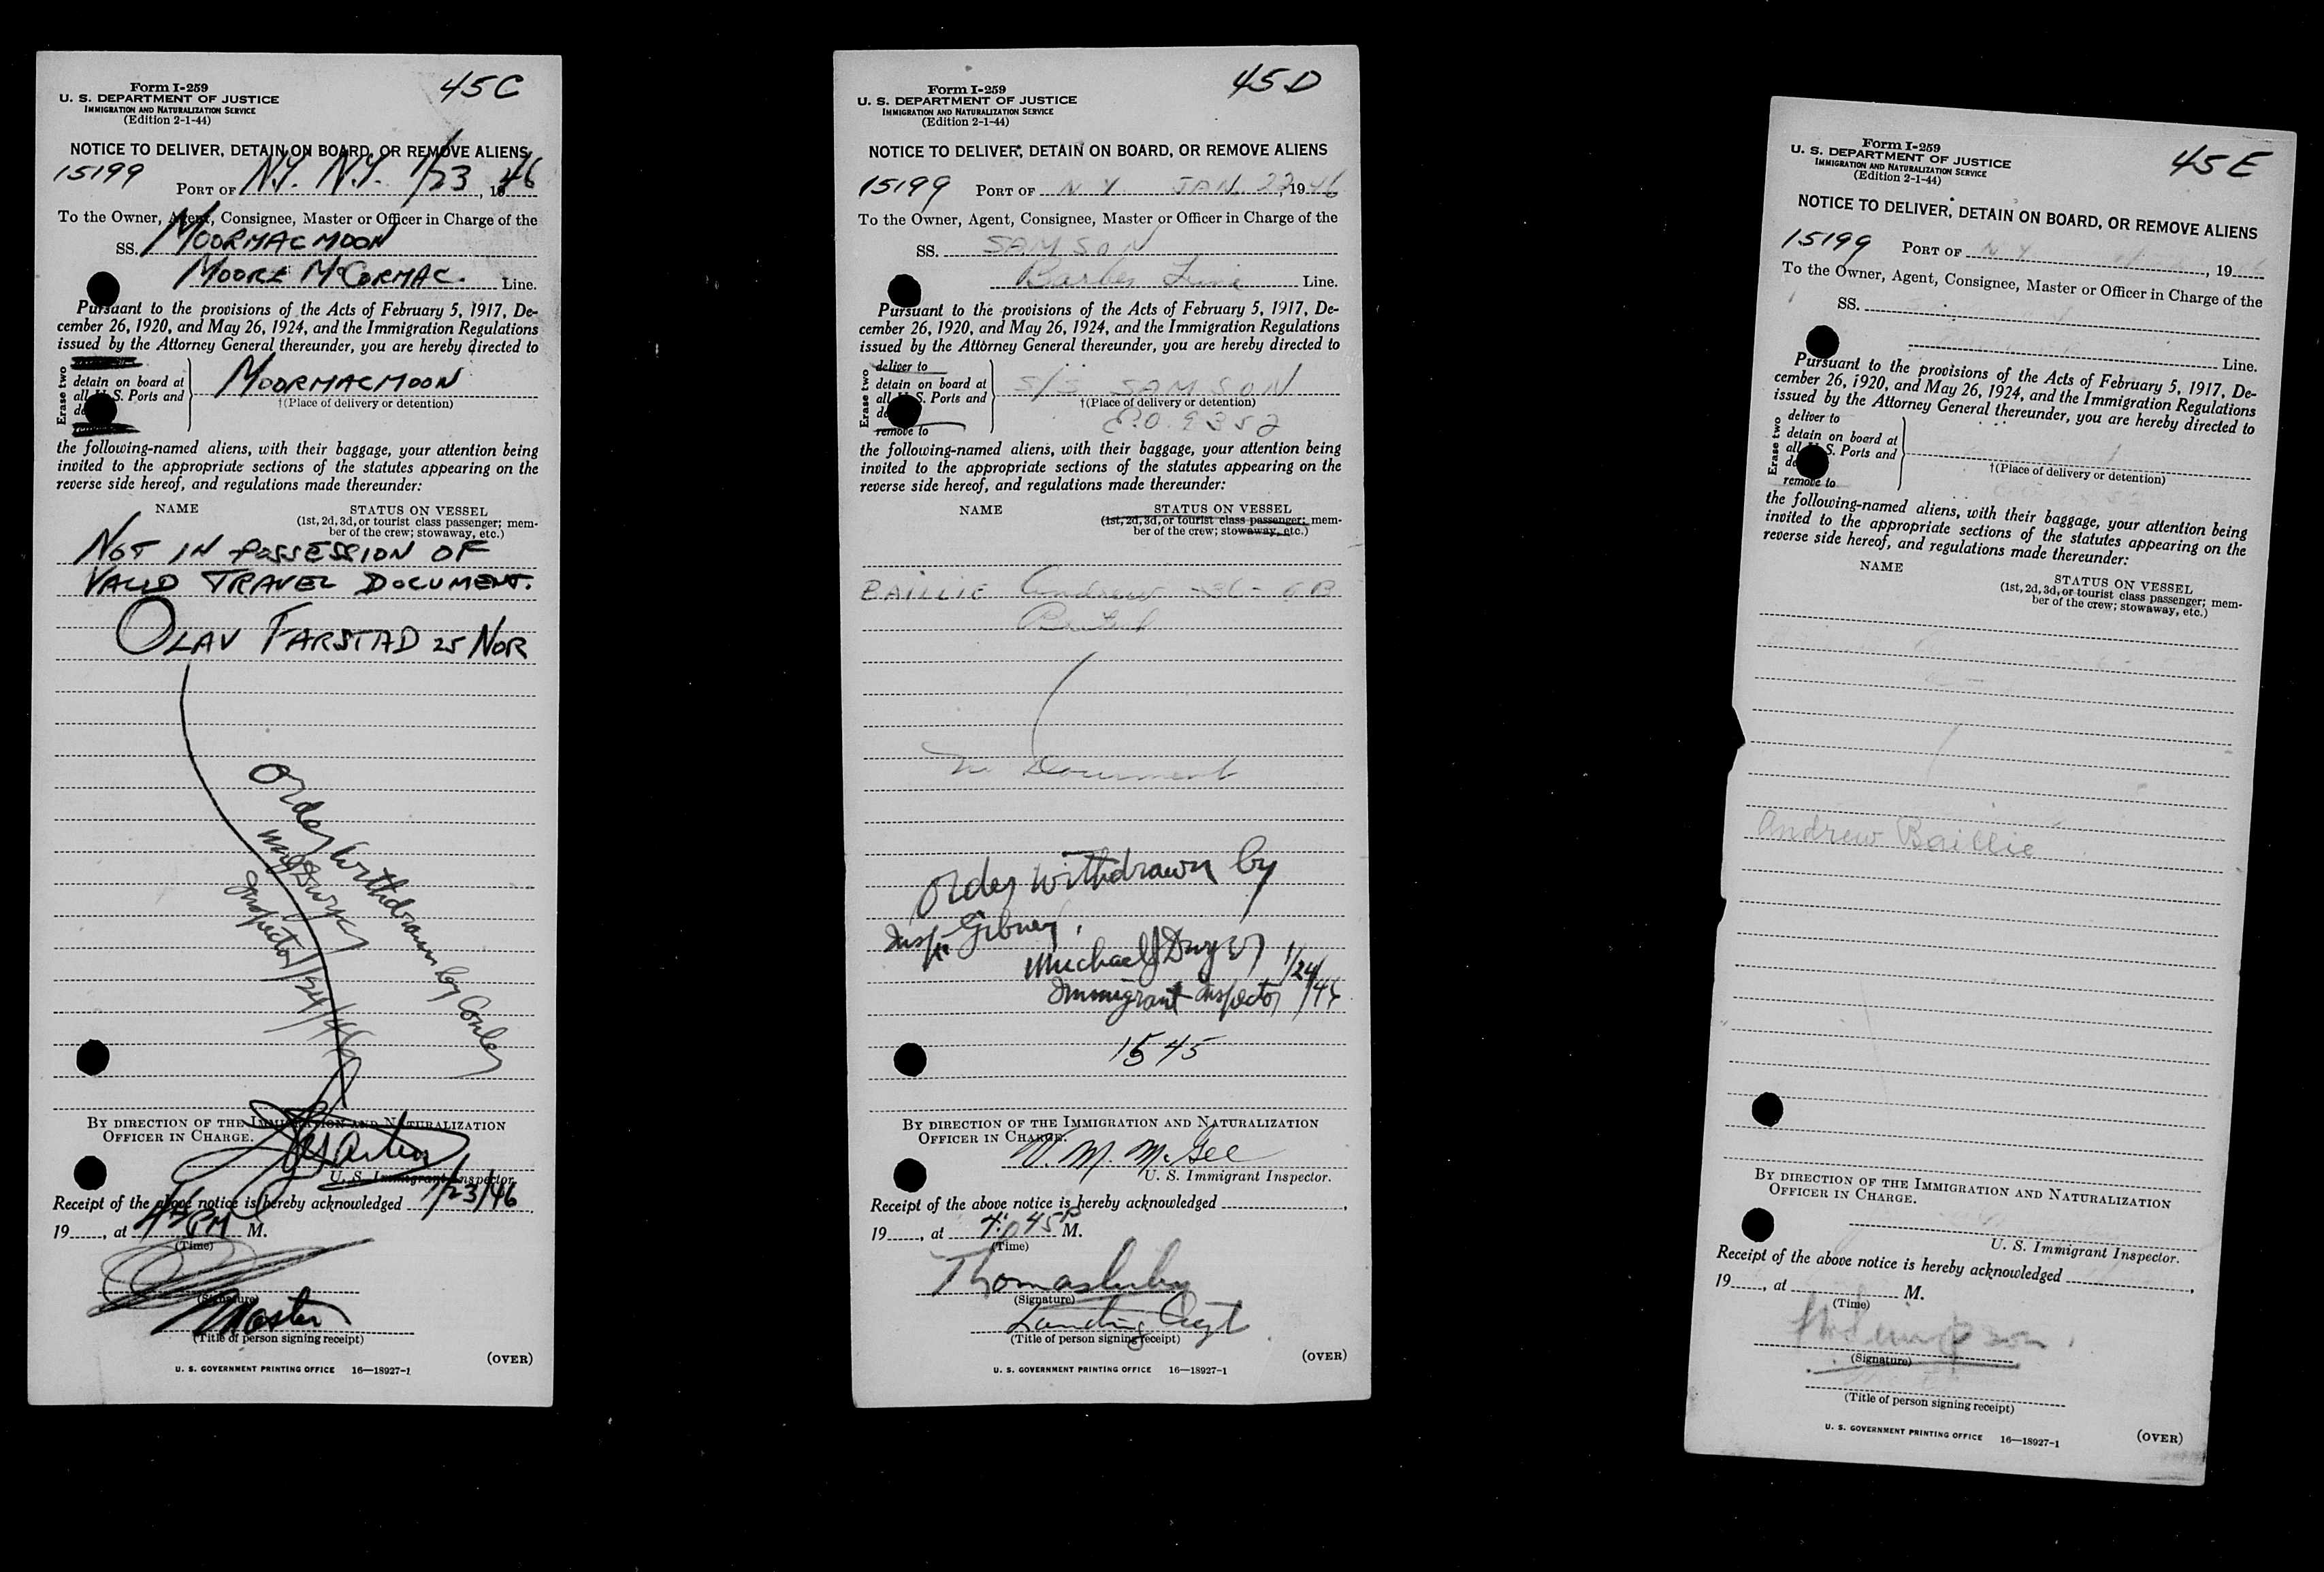 45C
Form I-259
U. S. DEPARTMENT OF JUSTICE
IMMIGRATION AND NATURALIZATION SERVICE
(Edition 2-1-44)
NOTICE TO DELIVER, DETAIN ON BOARD, OR REMOVE ALIENS
15199 PORT OF N.Y. N.Y. 1/23, 1946
To the Owner, Agent, Consignee, Master or Officer in Charge of the
SS. MOORMACMOON
MOORE McCORMAC. Line.
Pursuant to the provisions of the Acts of February 5, 1917, De-
cember 26, 1920, and May 26, 1924, and the Immigration Regulations
issued by the Attorney General thereunder, you are hereby directed to
Erase two
detain on board at
all U. S. Ports and
MOORMACMOON
†(Place of delivery or detention)
the following-named aliens, with their baggage, your attention being
invited to the appropriate sections of the statutes appearing on the
reverse side hereof, and regulations made thereunder:
NAME STATUS ON VESSEL
(1st, 2d, 3d, or tourist class passenger; mem-
ber of the crew; stowaway, etc.)
NOT IN POSSESSION OF
VALID TRAVEL DOCUMENT.
OLAV FARSTAD 25 NOR
Order Withdrawn by Conley
Dwyer
Inspector 1/24/46
BY DIRECTION OF THE IMMIGRATION AND NATURALIZATION
OFFICER IN CHARGE.
U. S. Immigrant Inspector.
Receipt of the above notice is hereby acknowledged 1/23/46,
19, at PM M.
(Time)
(Signature)
Master
(Title of person signing receipt)
(OVER)
U. S. GOVERNMENT PRINTING OFFICE 16—18927-1
45D
Form I-259
U. S. DEPARTMENT OF JUSTICE
IMMIGRATION AND NATURALIZATION SERVICE
(Edition 2-1-44)
NOTICE TO DELIVER, DETAIN ON BOARD, OR REMOVE ALIENS
15199 PORT OF N Y JAN. 22, 1946
To the Owner, Agent, Consignee, Master or Officer in Charge of the
SS. SAMSON
Barber Line Line.
Pursuant to the provisions of the Acts of February 5, 1917, De-
cember 26, 1920, and May 26, 1924, and the Immigration Regulations
issued by the Attorney General thereunder, you are hereby directed to
Erase two
deliver to
detain on board at
all U. S. Ports and
remove to
S/S SAMSON
†(Place of delivery or detention)
E.O. 9352
the following-named aliens, with their baggage, your attention being
invited to the appropriate sections of the statutes appearing on the
reverse side hereof, and regulations made thereunder:
NAME STATUS ON VESSEL
(1st, 2d, 3d, or tourist class passenger; mem-
ber of the crew; stowaway, etc.)
BAILLIE Andrew
No Document
Order Withdrawn by
Inspr Gibney.
Michael J Dwyer 1/24/46
Immigrant Inspector
1545
BY DIRECTION OF THE IMMIGRATION AND NATURALIZATION
OFFICER IN CHARGE.
McGee
U. S. Immigrant Inspector.
Receipt of the above notice is hereby acknowledged ,
19, at 4:45 P M.
(Time)
Thomas
(Signature)
Landing Agt
(Title of person signing receipt)
(OVER)
U. S. GOVERNMENT PRINTING OFFICE 16—18927-1
45E
Form I-259
U. S. DEPARTMENT OF JUSTICE
IMMIGRATION AND NATURALIZATION SERVICE
(Edition 2-1-44)
NOTICE TO DELIVER, DETAIN ON BOARD, OR REMOVE ALIENS
15199 PORT OF N Y , 19
To the Owner, Agent, Consignee, Master or Officer in Charge of the
SS.
Line.
Pursuant to the provisions of the Acts of February 5, 1917, De-
cember 26, 1920, and May 26, 1924, and the Immigration Regulations
issued by the Attorney General thereunder, you are hereby directed to
Erase two
deliver to
detain on board at
all U. S. Ports and
remove to
†(Place of delivery or detention)
the following-named aliens, with their baggage, your attention being
invited to the appropriate sections of the statutes appearing on the
reverse side hereof, and regulations made thereunder:
NAME STATUS ON VESSEL
(1st, 2d, 3d, or tourist class passenger; mem-
ber of the crew; stowaway, etc.)
Andrew Baillie
BY DIRECTION OF THE IMMIGRATION AND NATURALIZATION
OFFICER IN CHARGE.
U. S. Immigrant Inspector.
Receipt of the above notice is hereby acknowledged ,
19, at M.
(Time)
(Signature)
(Title of person signing receipt)
(OVER)
U. S. GOVERNMENT PRINTING OFFICE 16—18927-1